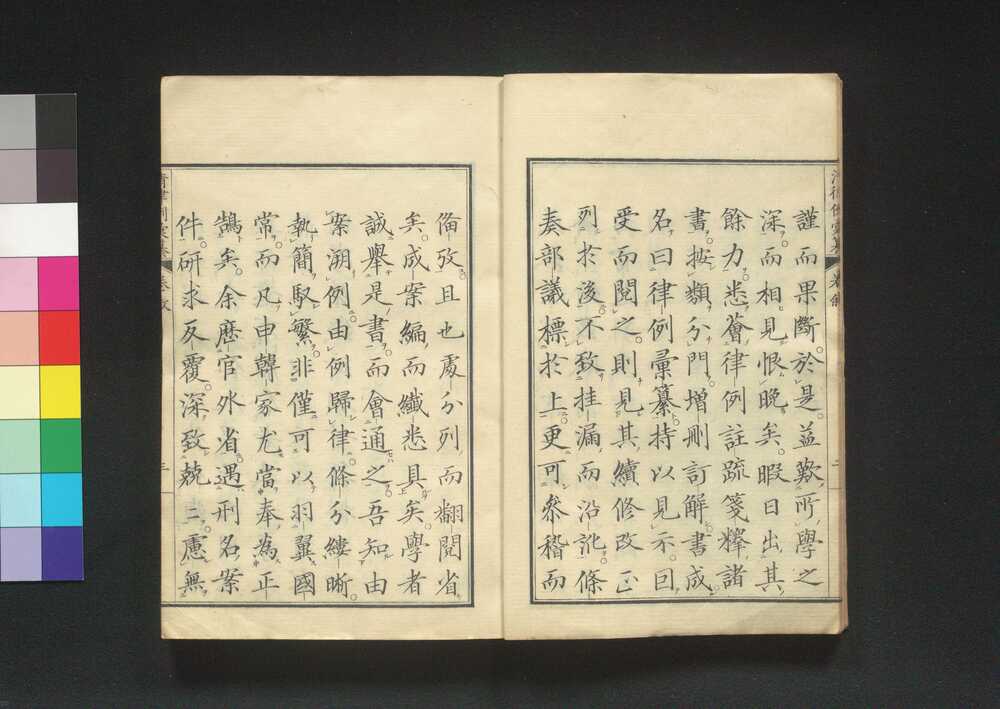 謹而果斷於是益歎所學之
深而相見恨晚矣暇日出其
餘力悉薈律例註疏箋釋諸
書按類分門增刪訂解書成
名曰律例彙纂持以見示回
受而閱之則見其續修改正
列於後不致挂漏而沿訛條
奏部議標於上更可參稽而
備攷且也處分列而翻閱省
矣成案編而纖悉具矣學者
誠舉是書而會通之吾知由
案溯例由例歸律條分縷晰
執簡馭繁非僅可以羽翼國
常而凡申韓家尤當奉為正
鵠矣余歷官外省遇刑名案
件研求反覆深致兢兢慮無